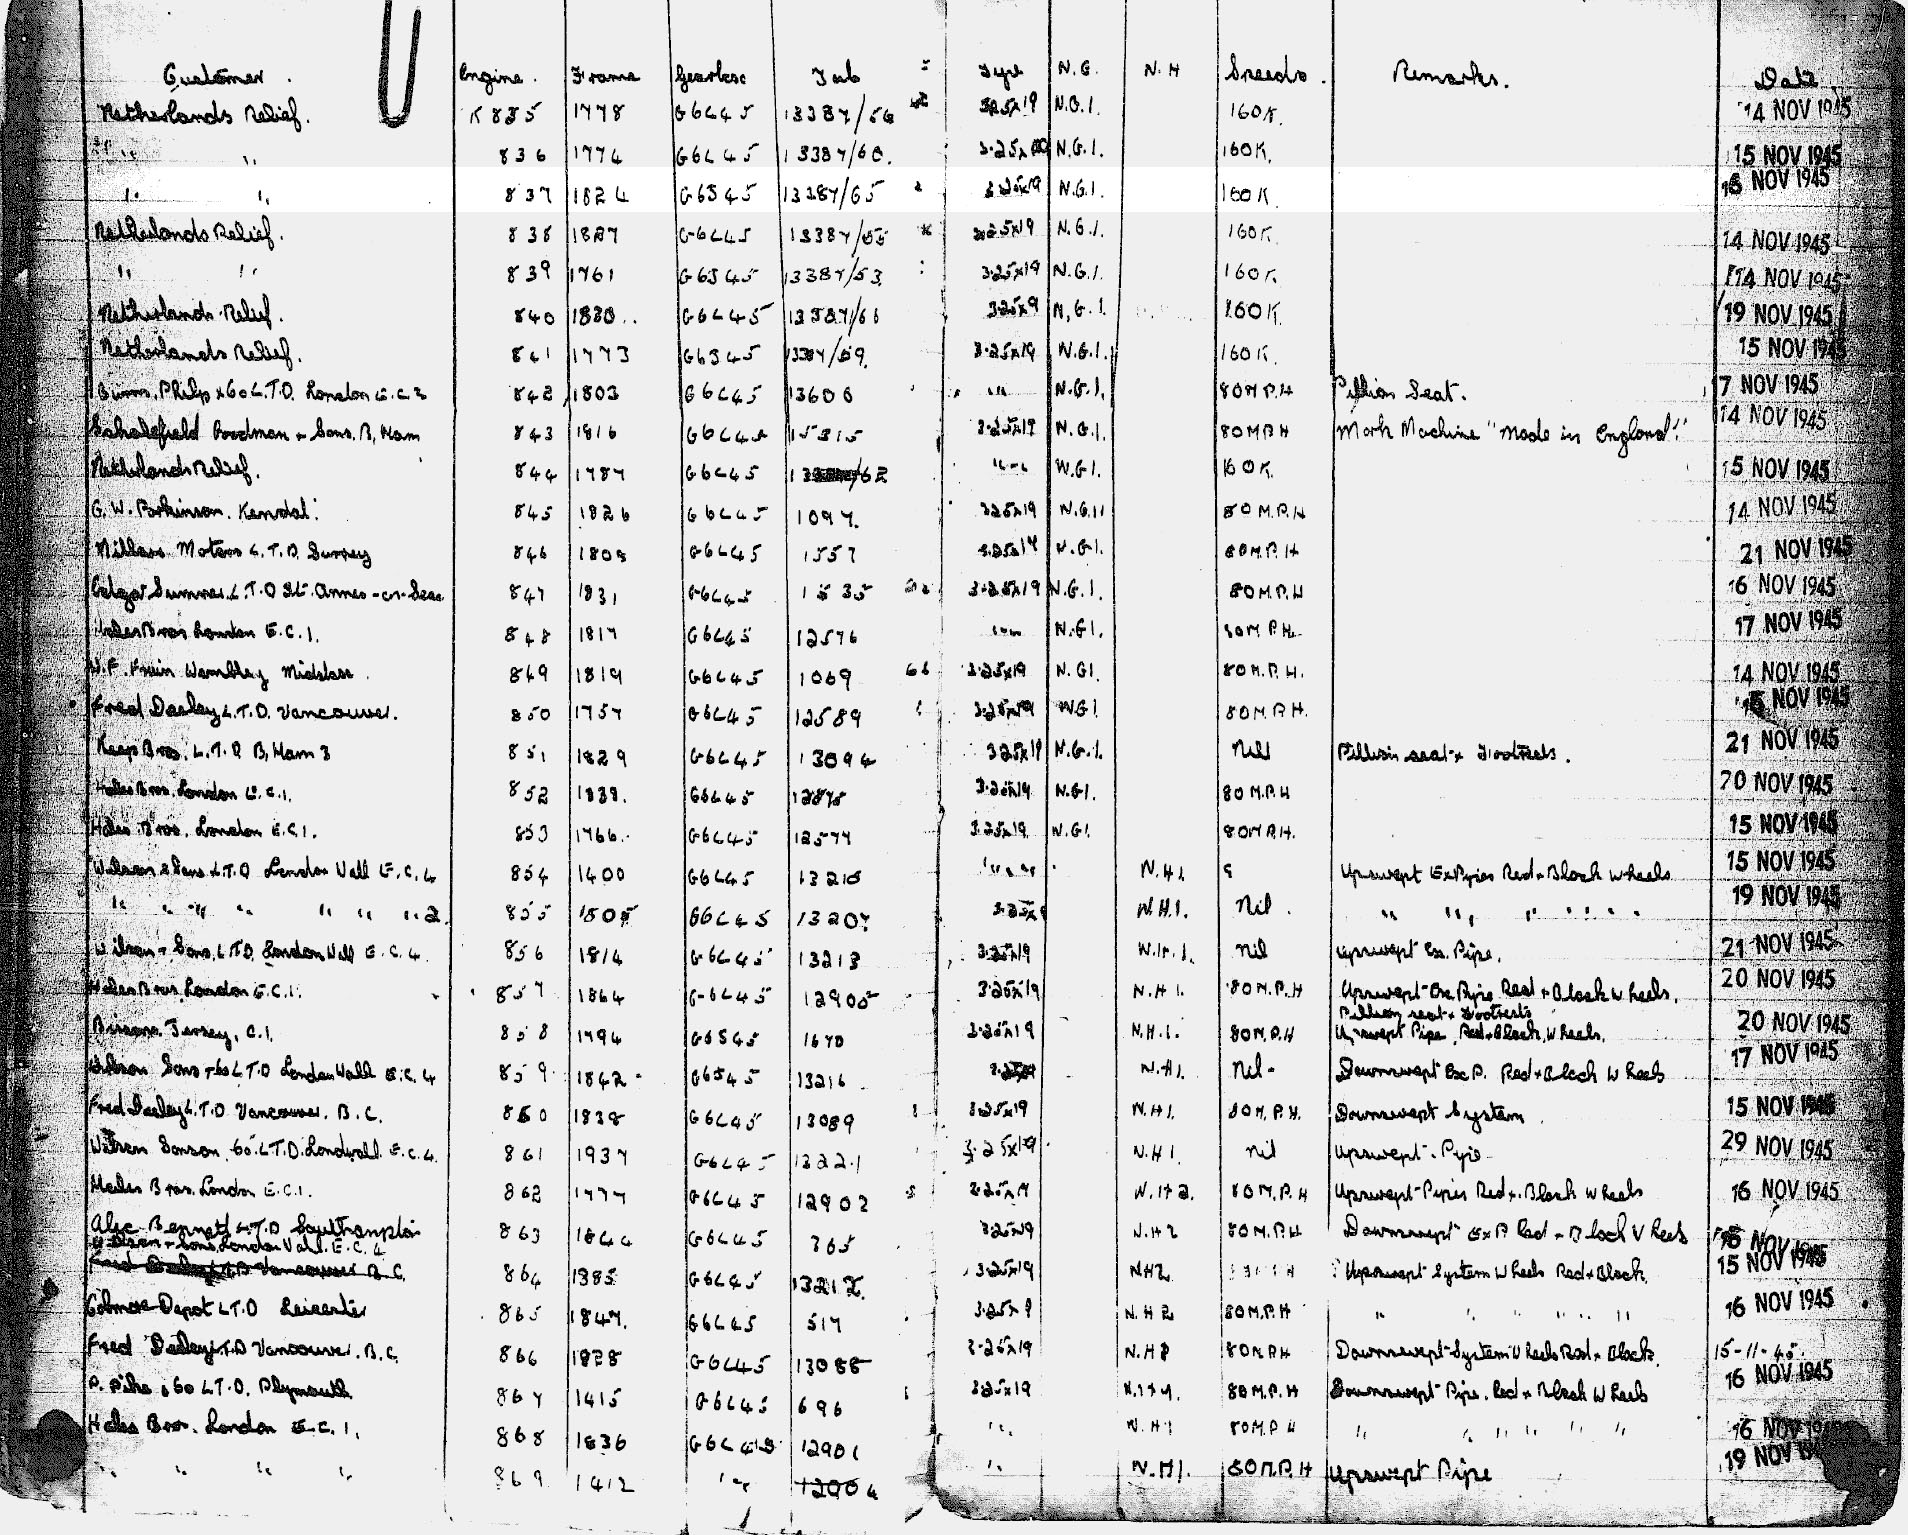 Customer. Engine. Frame Gearbox Tab Type N.G. N.H Speedo. Remarks. Date
Netherlands Relief. K 835 1778 G6L45 13387/56 3.25x19 N.G.1. 160K. 14 NOV 1945
" " 836 1774 G6L45 13387/60. N.G.1. 160K. 15 NOV 1945
" " 837 1824 G6S45 13387/65 3.25x19 N.G.1. 160K. NOV 1945
Netherlands Relief. 838 1827 G6L45 13387/55 3.25x19 N.G.1. 160K 14 NOV 1945
" " 839 1761 G6S45 13387/53. 3.25x19 N.G.1. 160K 14 NOV 1945
Netherlands Relief. 840 G6L45 13387/66 N.G.1. 160K 19 NOV 1945
Netherlands Relief. 841 1773 G6S45 13387/59. 3.25x19 N.G.1. 160K. 15 NOV 1945
Burns, Philp & Co L.T.D. London E.C.3 842 1803 G6L45 13606 " " N.G.1. 80M.P.H Pillion Seat. 17 NOV 1945
Scholefield Goodman & Sons. B,Ham 843 1816 G6L45 15315 3.25x19 N.G.1. 80MPH Mark Machine "Made in England". 14 NOV 1945
Netherlands Relief. 844 1787 G6L45 /62 " " N.G.1. 160K. 15 NOV 1945
G.W. Parkinson. Kendal. 845 1826 G6L45 1097. 3.25x19 N.G.1. 80 M.P.H 14 NOV 1945
Millars Motors L.T.D. Surrey 846 1808 G6L45 1557 3.25x19 N.G.1. 80M.P.H 21 NOV 1945
Sumner L.T.D St. Annes-on-Sea 847 1831 G6L45 1535 3.25x19 N.G.1. 80M.P.H 16 NOV 1945
Hales Bros London E.C.1. 848 1817 G6L45 12576 " " N.G1. 80M.P.H. 17 NOV 1945
W.F. Wembley Middlesex 849 1819 G6L45 1069 3.25x19 N.G1. 80M.P.H. 14 NOV 1945
Fred Deeley L.T.D. Vancouver. 850 1757 G6L45 12589 3.25x19 N.G1. 80M.P.H. NOV 1945
Keep Bros. L.T.D. B,Ham 3 851 1829 G6L45 13094 3.25x19 N.G.1. Nil Pillion seat & Footrests. 21 NOV 1945
Hales Bros. London E.C.1. 852 G6L45 3.25x19. N.G1. 80 M.P.H 20 NOV 1945
Hales Bros. London E.C.1. 853 1766. G6L45 12577 3.25x19. N.G1. 80M.P.H. 15 NOV 1945
Wilson & Sons L.T.D London Wall E.C.4 854 1400 G6L45 13210 " " N.H1. Upswept Ex Pipes Red & Black Wheels 15 NOV 1945
" " " " " " " 2. 855 1805 G6L45 13207 N.H.1. Nil. " " " " " " 19 NOV 1945
Wilson & Sons, L.T.D. London Wall E.C.4. 856 1814 G6L45 13213 3.25x19 N.H.1. Nil Upswept Ex. Pipe. 21 NOV 1945
Hales Bros. London E.C.1. 857 1864 G6L45 12905 3.25x19 N.H1. 80M.P.H Upswept Ex. Pipe Red & Black Wheels. 20 NOV 1945
Pillion seat & Footrests
Jersey, C.I. 858 1794 G6S45 1670 3.25x19 N.H.1. 80M.P.H Upswept Pipe, Red & Black, Wheels. 20 NOV 1945
Sons & Co L.T.D London Wall E.C.4 859. 1842 G6S45 13216 N.H1. Nil- Downswept Ex P. Red & Black Wheels 17 NOV 1945
Fred Deeley L.T.D Vancouver. B.C. 860 1838 G6L45 13089 3.25x19 N.H1. 80M.P.H. Downswept System 15 NOV 1945
Wilson Co. L.T.D. E.C.4. 861 1937 G6L45 13221 3.25x19 N.H1. nil Upswept. Pipe 29 NOV 1945
Hales Bros. London E.C.1. 862 1777 G6L45 12902 3.25x19 N.H2. 80M.P.H Upswept Pipes Red & Black Wheels 16 NOV 1945
Alec Bennett L.T.D Southampton 863 1844 G6L45 365 3.25x19 N.H2 80M.P.H Downswept Ex P Red & Black Wheels NOV 1945
Wilson & Sons, London Wall. E.C.4
Fred Deeley L.T.D Vancouver B.C. 864 1385 G6L45 13212. 3.25x19 NH2. Upswept System Wheels Red & Black. 15 NOV 1945
Colmore Depot L.T.D Leicester 865 1847. G6L45 517 N.H2 80M.P.H " " " " " 16 NOV 1945
Fred Deeley L.T.D Vancouver. B.C. 866 1828 G6L45 13088 3.25x19 N.H2 80M.P.H Downswept System Wheels Red & Black. 15-11-45.
P. Pike & Co L.T.D. Plymouth 867 1415 G6L45 696 3.25x19 80M.P.H Downswept Pipe. Red & Black Wheels 16 NOV 1945
Hales Bros. London E.C.1. 868 1836 G6L45 12901 " N.H1 80M.P.H " " " " " " 16 NOV
" " " " 869 1412 " " N.H1. 80M.P.H Upswept Pipe 19 NOV